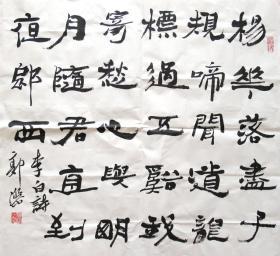 楊華落盡子
規啼聞道龍
標過五谿我
寄愁心與明
月隨君直到
夜郎西
李白詩
郭